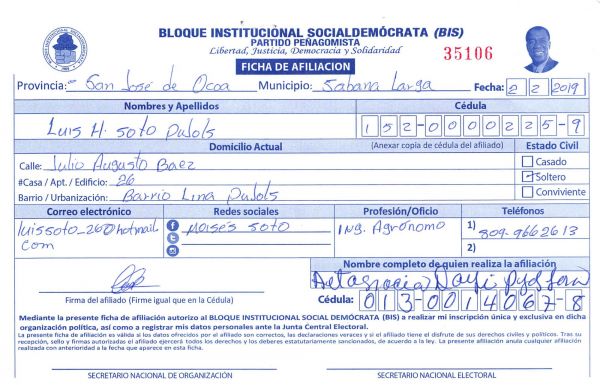 BLOQUE INSTITUCIONAL SOCIALDEMÓCRATA (BIS)
PARTIDO PEÑAGOMISTA
Libertad, Justicia, Democracia y Solidaridad
35106
FICHA DE AFILIACION
Provincia: San José de Ocoa Municipio: Sabana Larga Fecha: 2 2 2019
Nombres y Apellidos Cédula
Luis H. Soto Pujols 152-0000225-9
Domicilio Actual (Anexar copia de cédula del afiliado) Estado Civil
Calle: Julio Augusto Baez Casado
#Casa / Apt. / Edificio: 26 Soltero
Barrio / Urbanización: Barrio Lina Pujols Conviviente
Correo electrónico Redes sociales Profesión/Oficio Teléfonos
luissoto_260hotmail Moisés Soto Ing. Agrónomo 1) 809-9662613
com 2)
Nombre completo de quien realiza la afiliación
Altagracia
Firma del afiliado (Firme igual que en la Cédula) Cédula: 013-0014067-8
Mediante la presente ficha de afiliación autorizo al BLOQUE INSTITUCIONAL SOCIAL DEMÓCRATA (BIS) a realizar mi inscripción única y exclusiva en dicha
organización política, así como a registrar mis datos personales ante la Junta Central Electoral.
La presente ficha de afiliación es válida si los datos ofrecidos por el afiliado son correctos, las declaraciones veraces y si el afiliado tiene el disfrute de sus derechos civiles y políticos. Tras su
recepción, sello y firmas autorizadas el afiliado ejercerá todos los derechos y los deberes estatutariamente sancionados, de acuerdo a la ley. La presente afiliación anula cualquier afiliación
realizada con anterioridad a la fecha que aparece en esta ficha.
SECRETARIO NACIONAL DE ORGANIZACIÓN SECRETARIO NACIONAL ELECTORAL